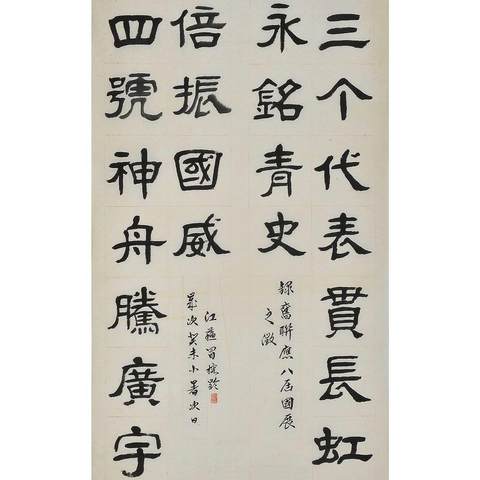 三个代表貫長虹
永銘青史
録舊聯應八屆國展
之徵
四號神舟騰廣宇
倍振國威
歲次癸未小暑次日
江蘇冒齡